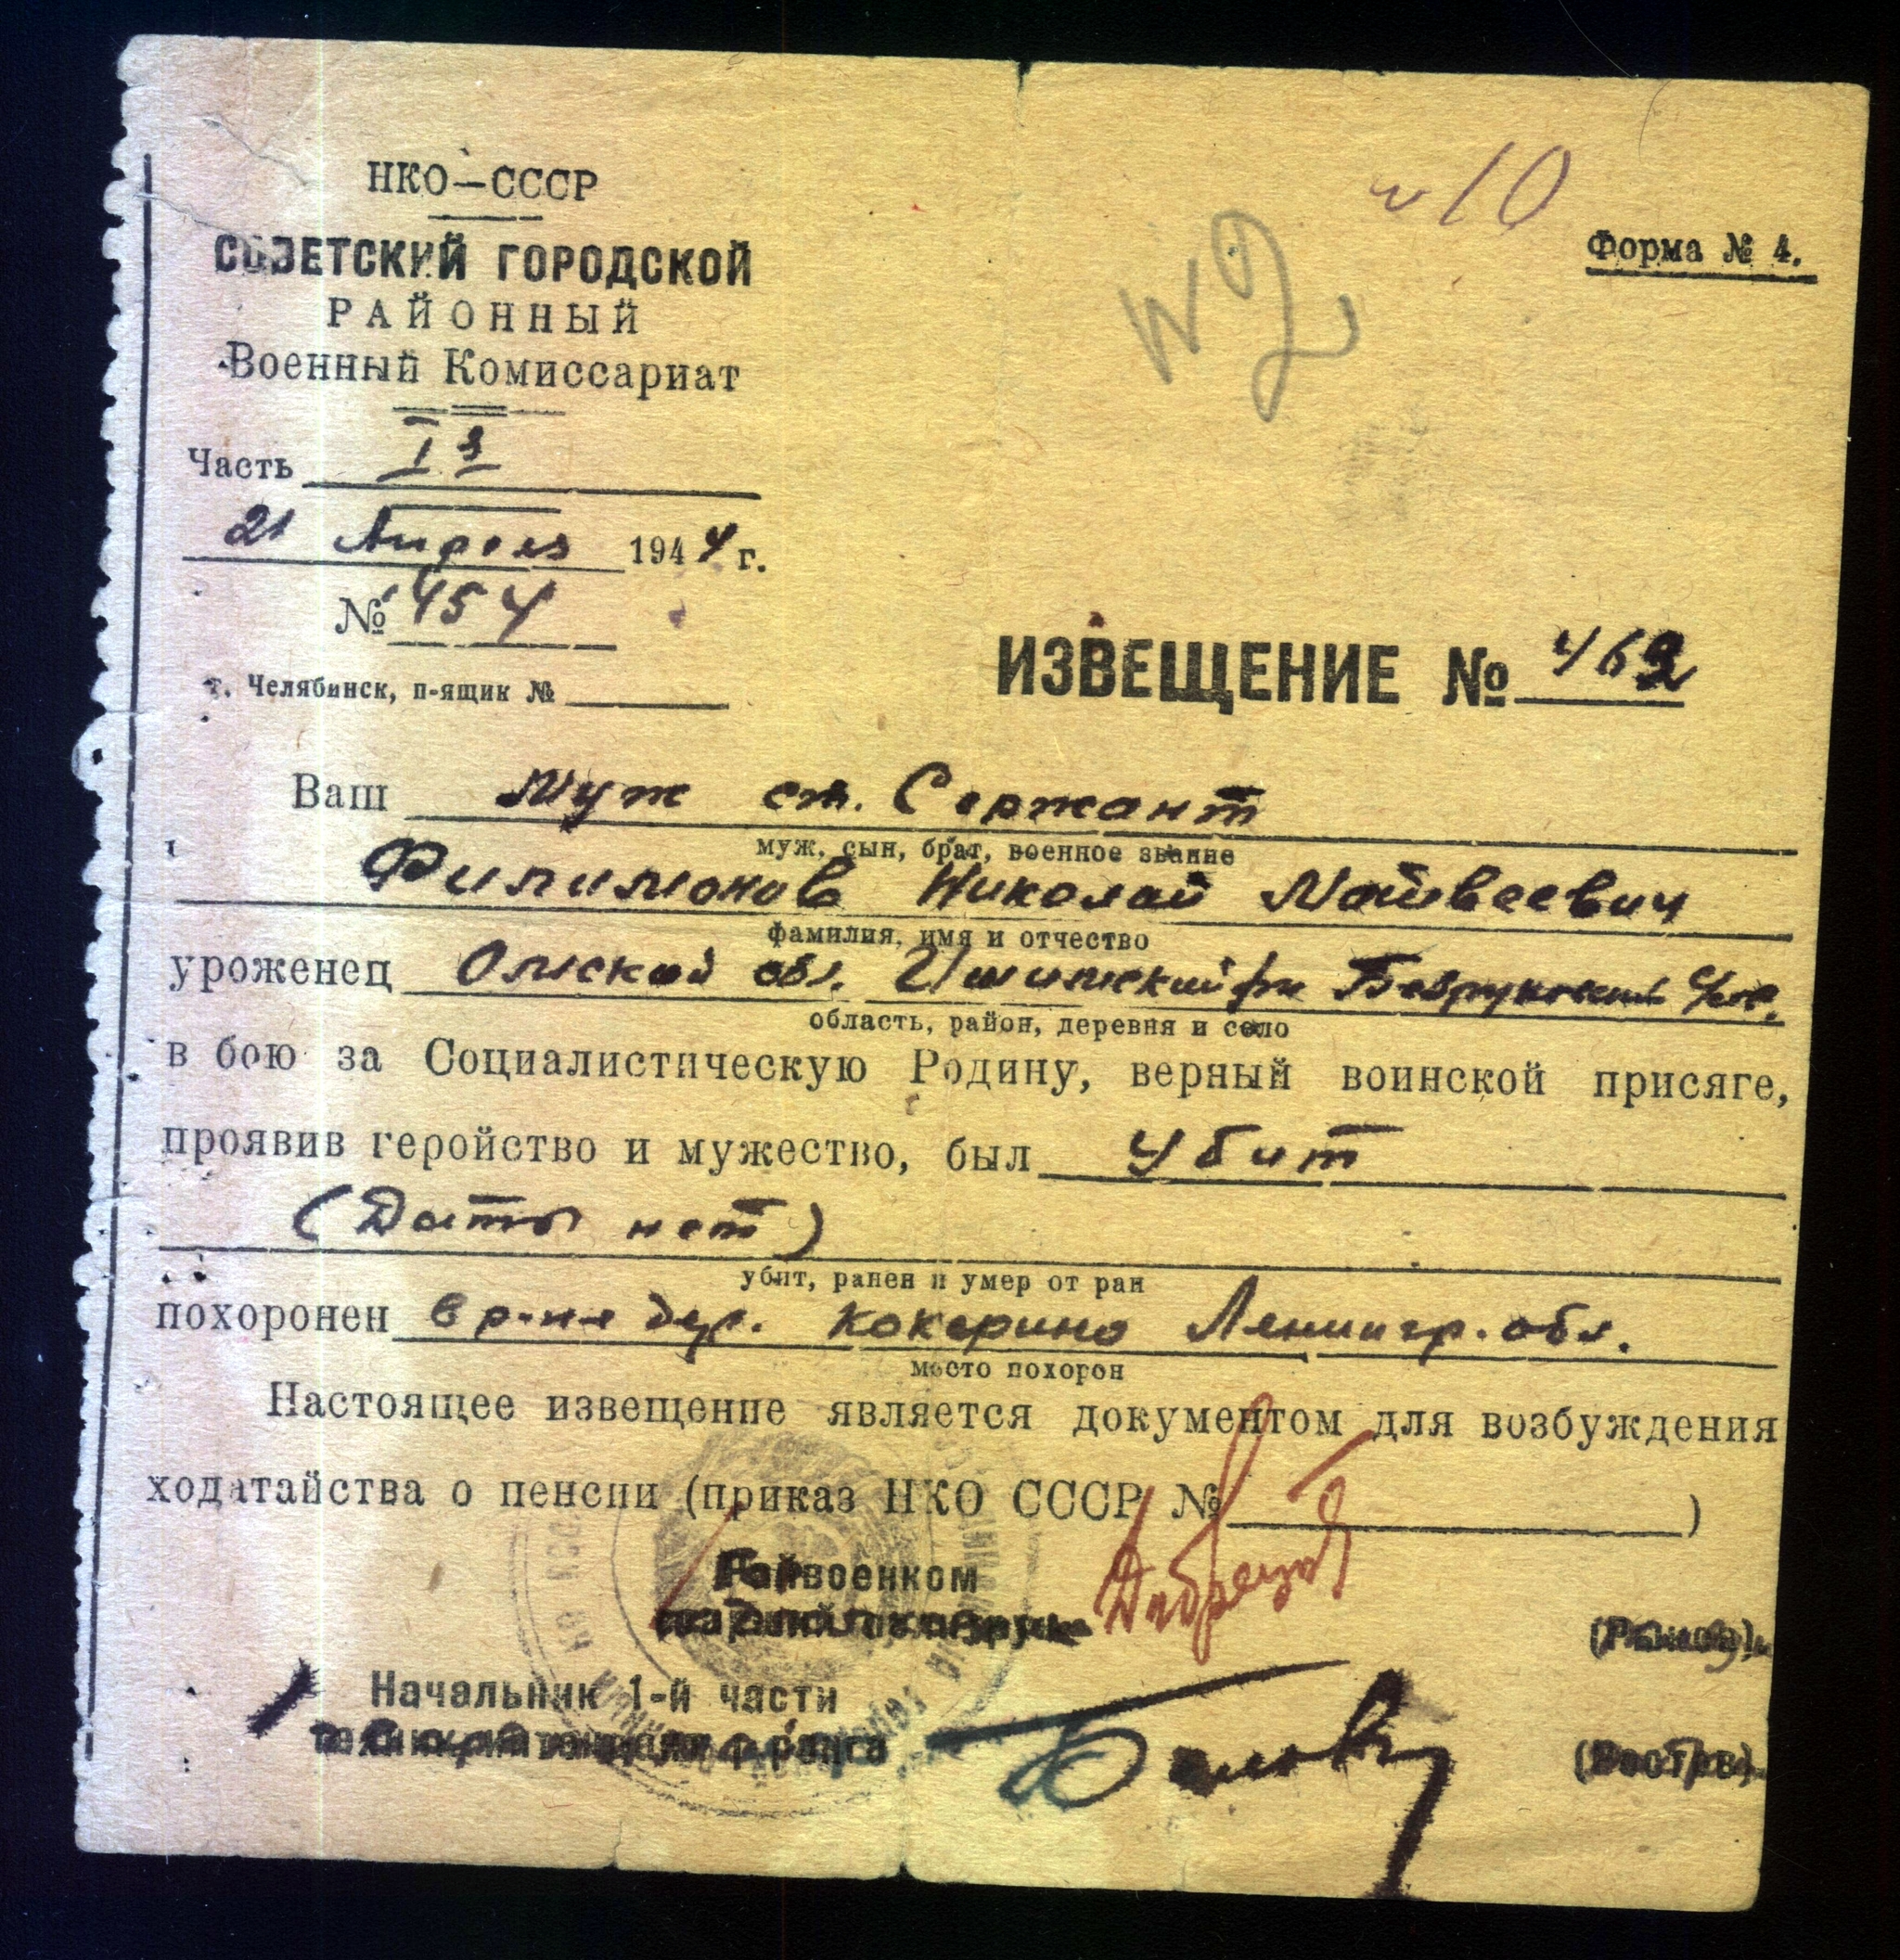 № 10
№ 2
Форма № 4.
НКО—СССР
СОВЕТСКИЙ ГОРОДСКОЙ
РАЙОННЫЙ
Военный Комиссариат
Часть I я
21 Апреля 1944 г.
№ 454
г. Челябинск, п-ящик №
ИЗВЕЩЕНИЕ № 462
Ваш муж ст. Сержант
муж, сын, брат, военное звание
Филимонов Николай Матвеевич
фамилия, имя и отчество
уроженец Омской обл. Ишимский рн
область, район, деревня и село
в бою за Социалистическую Родину, верный воинской присяге,
проявив геройство и мужество, был убит
(Даты нет)
убит, ранен и умер от ран
похоронен в р-не дер. Кокерино Ленингр. обл.
место похорон
Настоящее извещение является документом для возбуждения
ходатайства о пенсии (приказ НКО СССР № )
военком
Начальник 1-й части